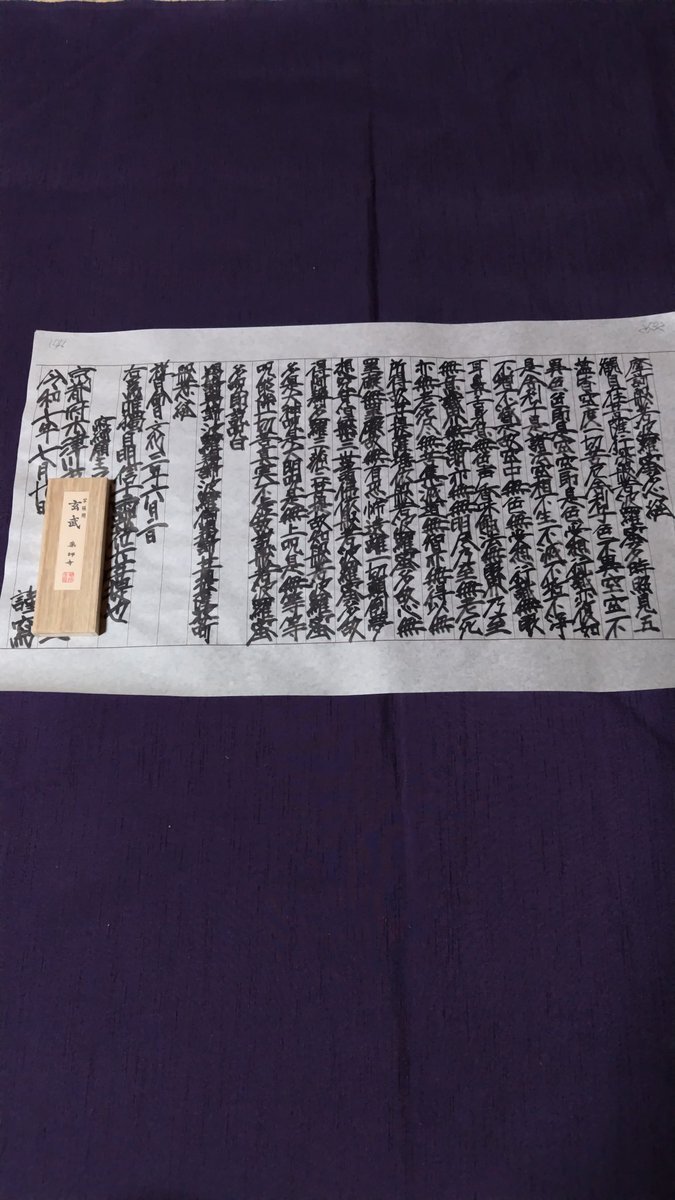 摩訶般若波羅蜜多心経
観自在菩薩行深般若波羅蜜多時照見五
蘊皆空度一切苦厄舎利子色不異空空不
異色色即是空空即是色受想行識亦復如
是舎利子是諸法空相不生不滅不垢不浄
不増不減是故空中無色無受想行識無眼
耳鼻舌身意無色声香味触法無眼界乃至
無意識界無無明亦無無明尽乃至無老死
亦無老死尽無苦集滅道無智亦無得以無
所得故菩提薩埵依般若波羅蜜多故心無
罣礙無罣礙故無有恐怖遠離一切顛倒夢
想究竟涅槃三世諸仏依般若波羅蜜多故
得阿耨多羅三藐三菩提故知般若波羅蜜
多是大神呪是大明呪是無上呪是無等等
呪能除一切苦真実不虚故説般若波羅蜜
多呪即説呪曰
羯諦羯諦波羅羯諦波羅僧羯諦菩提薩婆訶
般若心経
京都府木津川
令和 年七月十日 謹寫
玄武 薬師寺